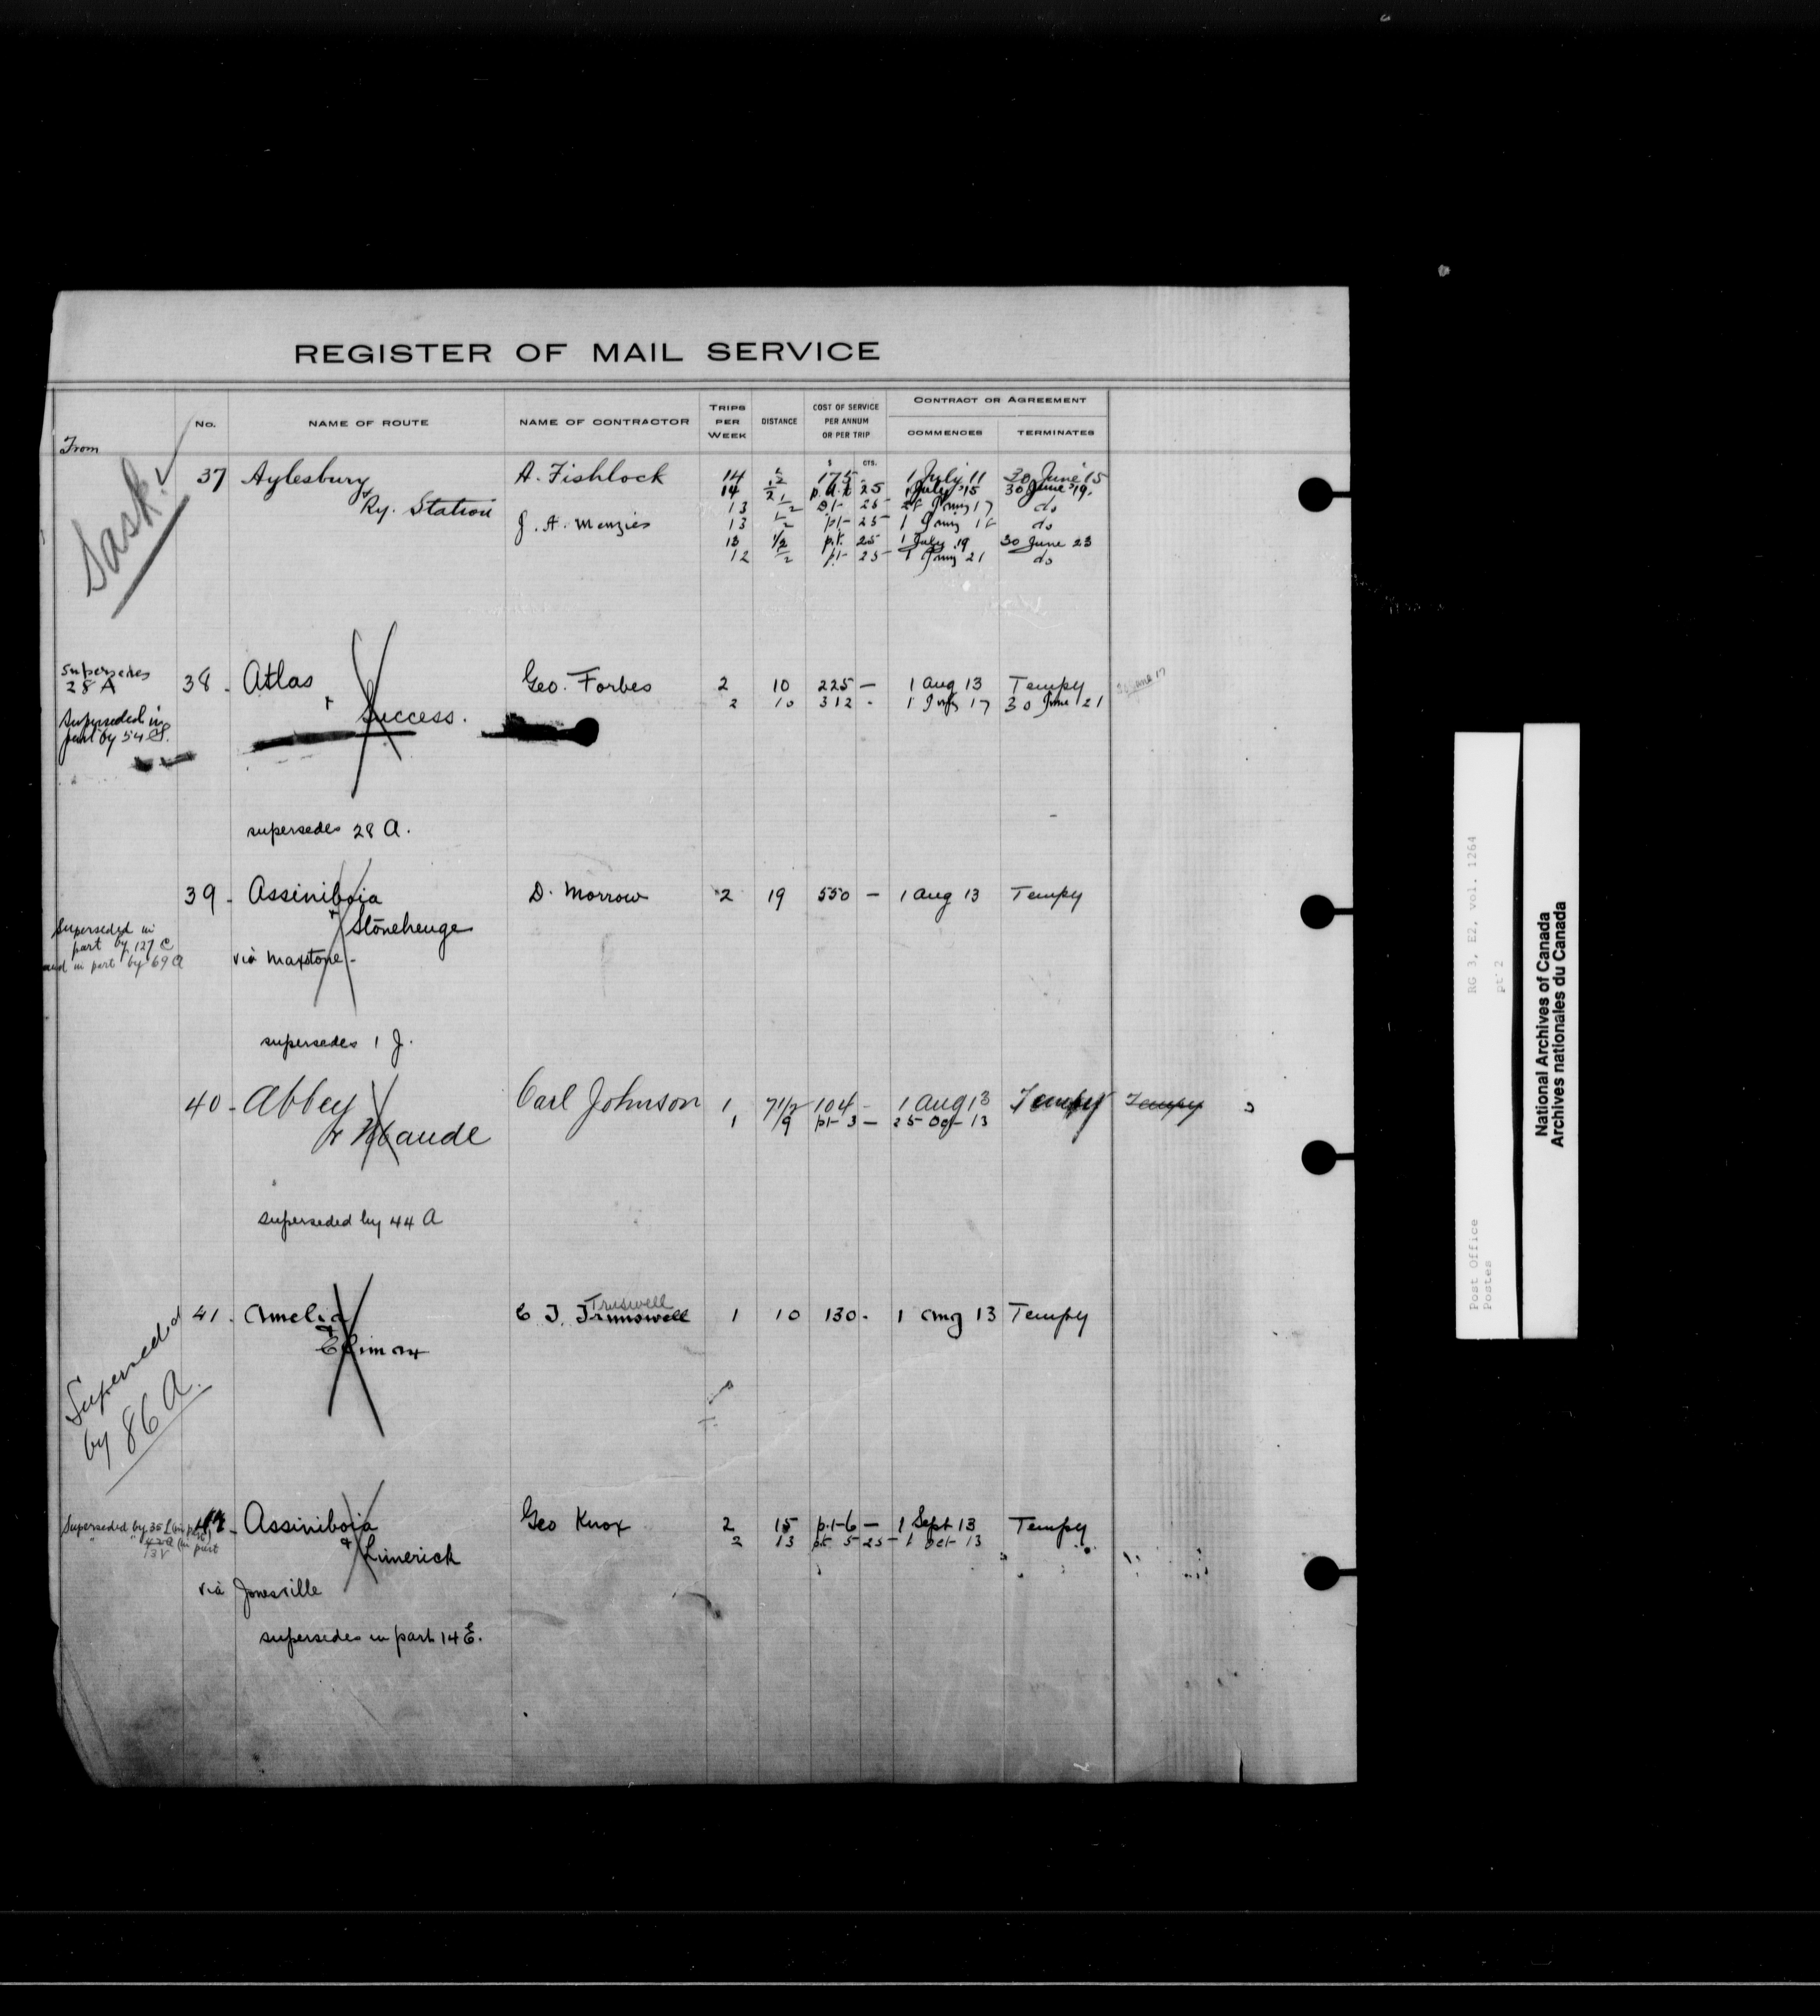 REGISTER OF MAIL SERVICE
From
No.
NAME OF ROUTE
NAME OF CONTRACTOR
TRIPS PER WEEK
DISTANCE
COST OF SERVICE PER ANNUM OR PER TRIP
CONTRACT OR AGREEMENT
COMMENCES
TERMINATES
$ cts.
Sask.
37 Aylesbury A. Fishlock 14 1/2 175 - 1 July 11 30 June 15
14 1/2 25 1 July 15 30 June 19.
& Ry. Station 13 1/2 25 17 do
J. A. Menzies 13 1/2 pt- 25 1 do
13 1/2 p.t. 25 1 July 19 30 June 23
12 1/2 pt- 25 1 21 do
supersedes
28 A
38 - Atlas Geo. Forbes 2 10 225 - 1 Aug 13 Tempy
2 10 312 - 1 July 17 30 June 21
June 17
Superseded in
part by 54
& Success.
supersedes 28 A.
39 - Assiniboia D. Morrow 2 19 550 - 1 Aug 13 Tempy
& Stonehenge
via Maxstone -
Superseded in
part by 127 C
and in part by 69 A
supersedes 1 J.
40 - Abbey Carl Johnson 1 7 1/2 104 - 1 Aug 13 Tempy Tempy
& Maude 1 9 pt- 3 - 25 Oct 13
superseded by 44 A
41 - Amelia C J. Trunswell 1 10 130 - 1 Aug 13 Tempy
Truswell
& Climax
Superseded
by 86 A.
Superseded by 35 (in part)
(in part
13 V
42 - Assiniboia Geo Knox 2 15 p.t- 6 - 1 Sept 13 Tempy
& Limerick 2 13 pt. 5 25 - 1 Oct 13
via Jonesville
supersedes in part 14 E.
RG 3, E2, vol. 1264
pt 2
Post Office
Postes
National Archives of Canada
Archives nationales du Canada